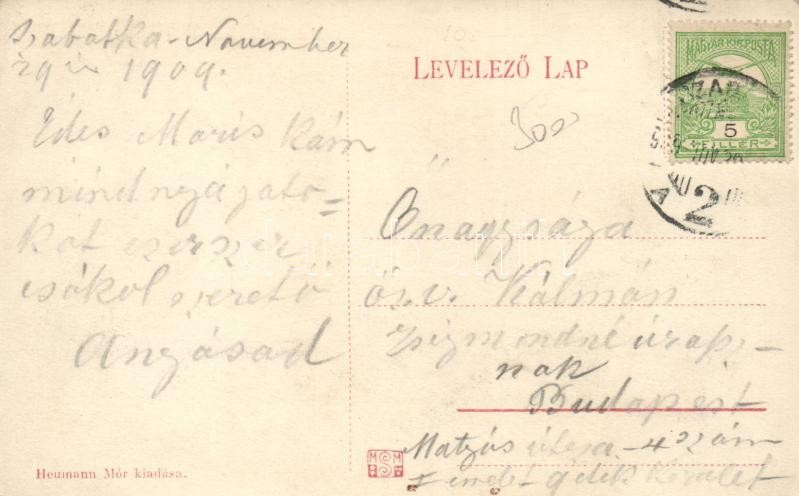 Szabatka - November
29 én 1909.
Édes Maris kám
mindnyájato=
kat ezerszer
csókol szerető
Angyásad
LEVELEZŐ LAP
300
MAGYAR KIR. POSTA
5
FILLÉR
2
Őnagysága
özv. Kálmán
Zsigmondné úrasz-
nak
Budapest
Matyás utcza - 4 szám
kerület
Heumann Mór kiadása.
darabanth